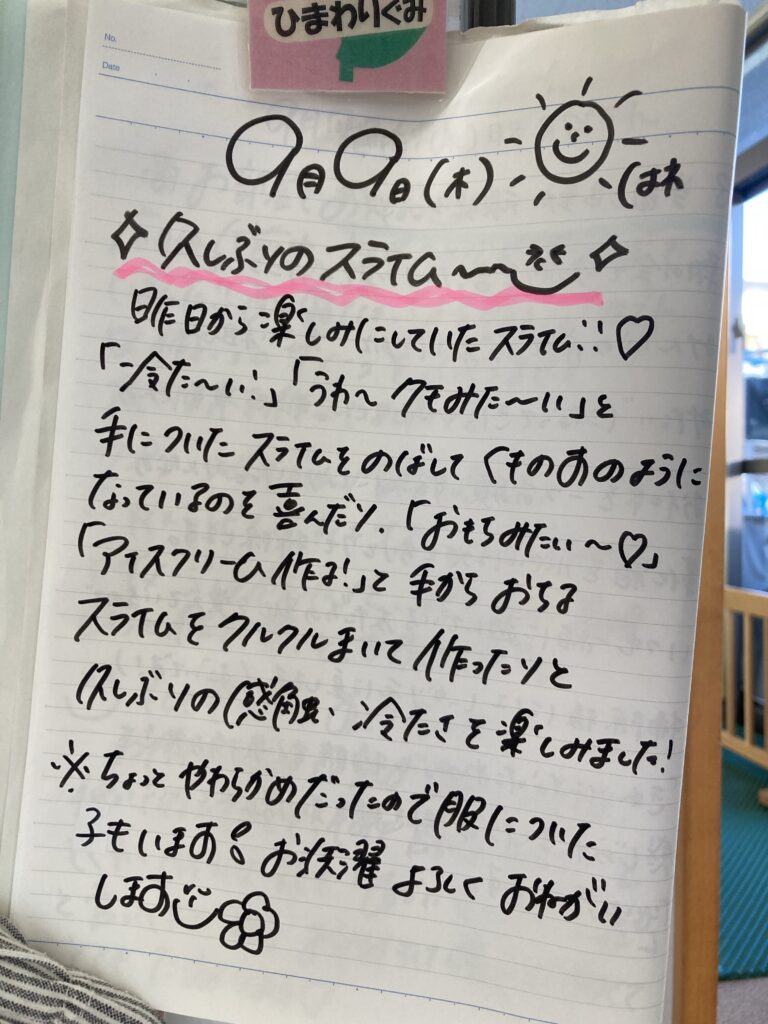 ひまわりぐみ
No.
Date
9月9日(木) (はれ
久しぶりのスライム〜
昨日から楽しみにしていたスライム!!♡
「冷た〜い!」「うわ〜クモみた〜い」と
手についたスライムをのばしてくものあのように
なっているのを喜んだり、「おもちみたい〜♡」
「アイスクリーム作る!」と手からおちる
スライムをクルクルまいて作ったりと
久しぶりの感触、冷たさを楽しみました!
※ちょっとやわらかめだったので服についた
子もいます。お洗濯よろしくおねがい
します